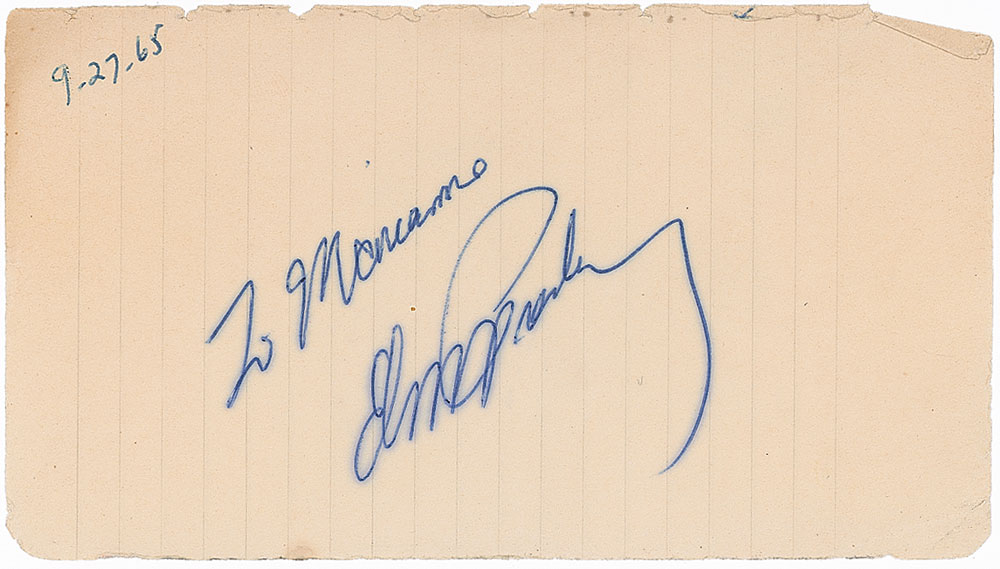 9-27-65
To Marianne
Elvis Presley